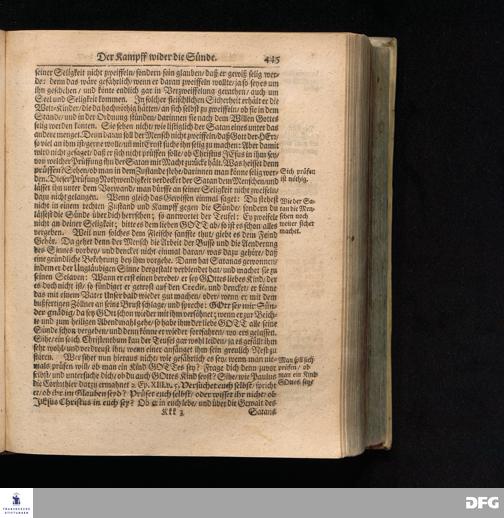 Der Kampff wider die Sünde. 445
seiner Seligkeit nicht zweiffeln/ sondern sein glauben/ daß er gewiß selig wer-
de: denn das wäre gefährlich/ wenn er daran zweiffeln wollte/ ja so sey es um
ihn geschehen/ und könte endlich gar in Verzweiffelung gerathen/ auch um
Seel und Seligkeit kommen. In solcher fleischlichen Sicherheit erhält er die
Welt-Kinder/ die da hochnöthig hätten/ an sich selbst zu zweiffeln/ ob sie in dem
Stande/ und in der Ordnung stünden/ darinnen sie nach dem Willen Gottes
selig werden können. Sie sehen nicht/ wie listiglich der Satan eines unter das
andere menget. Denn daran soll der Mensch nicht zweiffeln/ daß Gott der HErr/
so viel an ihm ist/ gerne wolle/ und mit Ernst suche ihn selig zu machen: Aber damit
wird nicht gesaget/ daß er sich nicht prüffen solle/ ob Christus JEsus in ihm sey/
von welcher Prüffung ihn der Satan mit Macht zurücke hält. Was heisset denn
prüffen? Sehen/ ob man in dem Zustande stehe/ darinnen man könne selig wer-
den. Dieser Prüfung Nothwendigkeit verdecket der Satan dem Menschen/ und
lässet ihn unter dem Vorwand/ man dürffe an seiner Seligkeit nicht zweifeln/
dazu nicht gelangen. Wenn gleich das Gewissen einmal saget: Du stehest
nicht in einem rechten Zustand und Kampff gegen die Sünde/ sondern du
lässest die Sünde über dich herrschen; so antwortet der Teufel: Ey zweifele
nicht an deiner Seligkeit; bitte es dem lieben GOTT ab/ so ist es schon alles
vergeben. Weil nun solches dem Fleische sanffte thut/ giebt es dem Feind
Gehör. Da gehet denn der Mensch die Arbeit der Busse und die Aenderung
des Sinnes vorbey/ und dencket nicht einmal daran/ was dazu gehöre/ daß
eine gründliche Bekehrung bey ihm vorgehe. Dann hat Satanas gewonnen/
indem er der Ungläubigen Sinne dergestalt verblendet hat/ und machet sie zu
seinen Sclaven: Wann er erst einen beredet/ er sey GOttes liebes Kind/ der
es doch nicht ist/ so sündiget er getrost auf den Credit, und dencket/ er könne
das mit einem Vater Unser bald wieder gut machen/ oder/ wenn er mit dem
bußfertigen Zöllner an seine Brust schlage/ und spreche: GOtt sey mir Sün-
der gnädig/ da sey GOtt schon wieder mit ihm versöhnet; wenn er zur Beich-
te und zum heiligen Abendmahl gehe/ so habe ihm der liebe GOTT alle seine
Sünde schon vergeben/ und denn könne er wieder fortfahren/ wo ers gelassen.
Sihe/ ein solch Christenthum kan der Teufel gar wohl leiden/ ja es gefällt ihm
sehr wohl/ und verdreust ihn/ wenn einer anfänget ihm sein greulich Nest zu
stören. Wer sihet nun hieraus nicht/ wie gefährlich es sey/ wenn man nie-
mals prüfen will/ ob man ein Kind GOTTes sey? Frage dich denn zuvor
selbst/ und untersuche dich/ ob du auch GOttes Kind seyst? Sihe/ wie Paulus
die Corinthier darzu ermahnet 2. Ep. XIII. v. 5. Versuchet euch selbst/ spricht
er/ ob ihr im Glauben seyd? Prüfet euch selbst/ oder wisset ihr nicht/ ob
JEsus Christus in euch sey? Ob er in euch lebe/ und über die Gewalt des
Kkk 3 Satans
Sich prüfen
ist nöthig.
Wie der Sa-
tan die Men-
schen noch
weiter sicher
machet.
Man soll sich
prüfen/ ob
man ein Kind
GOttes sey?
FRANCKESCHE
STIFTUNGEN
DFG